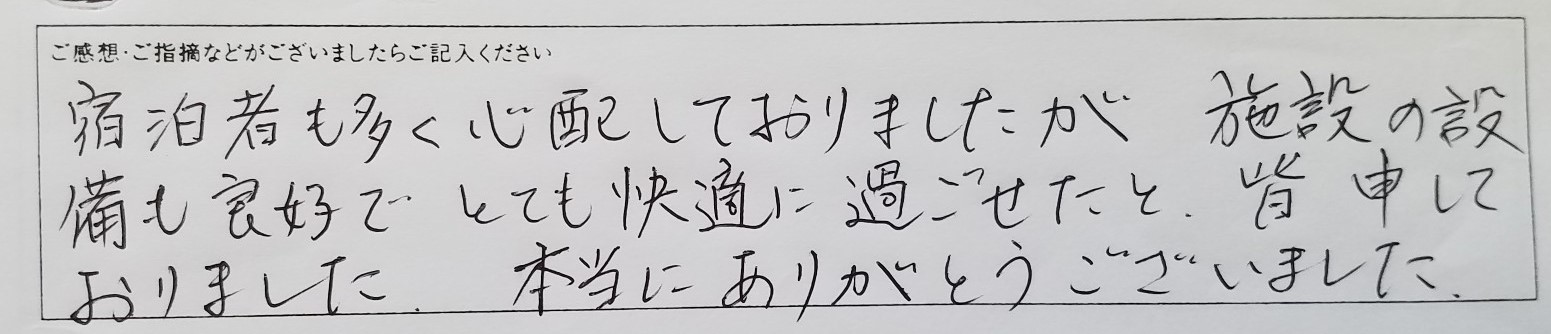 ご感想・ご指摘などがございましたらご記入ください
宿泊者も多く心配しておりましたが 施設の設
備も良好で とても快適に過ごせたと、皆申して
おりました。 本当にありがとうございました。